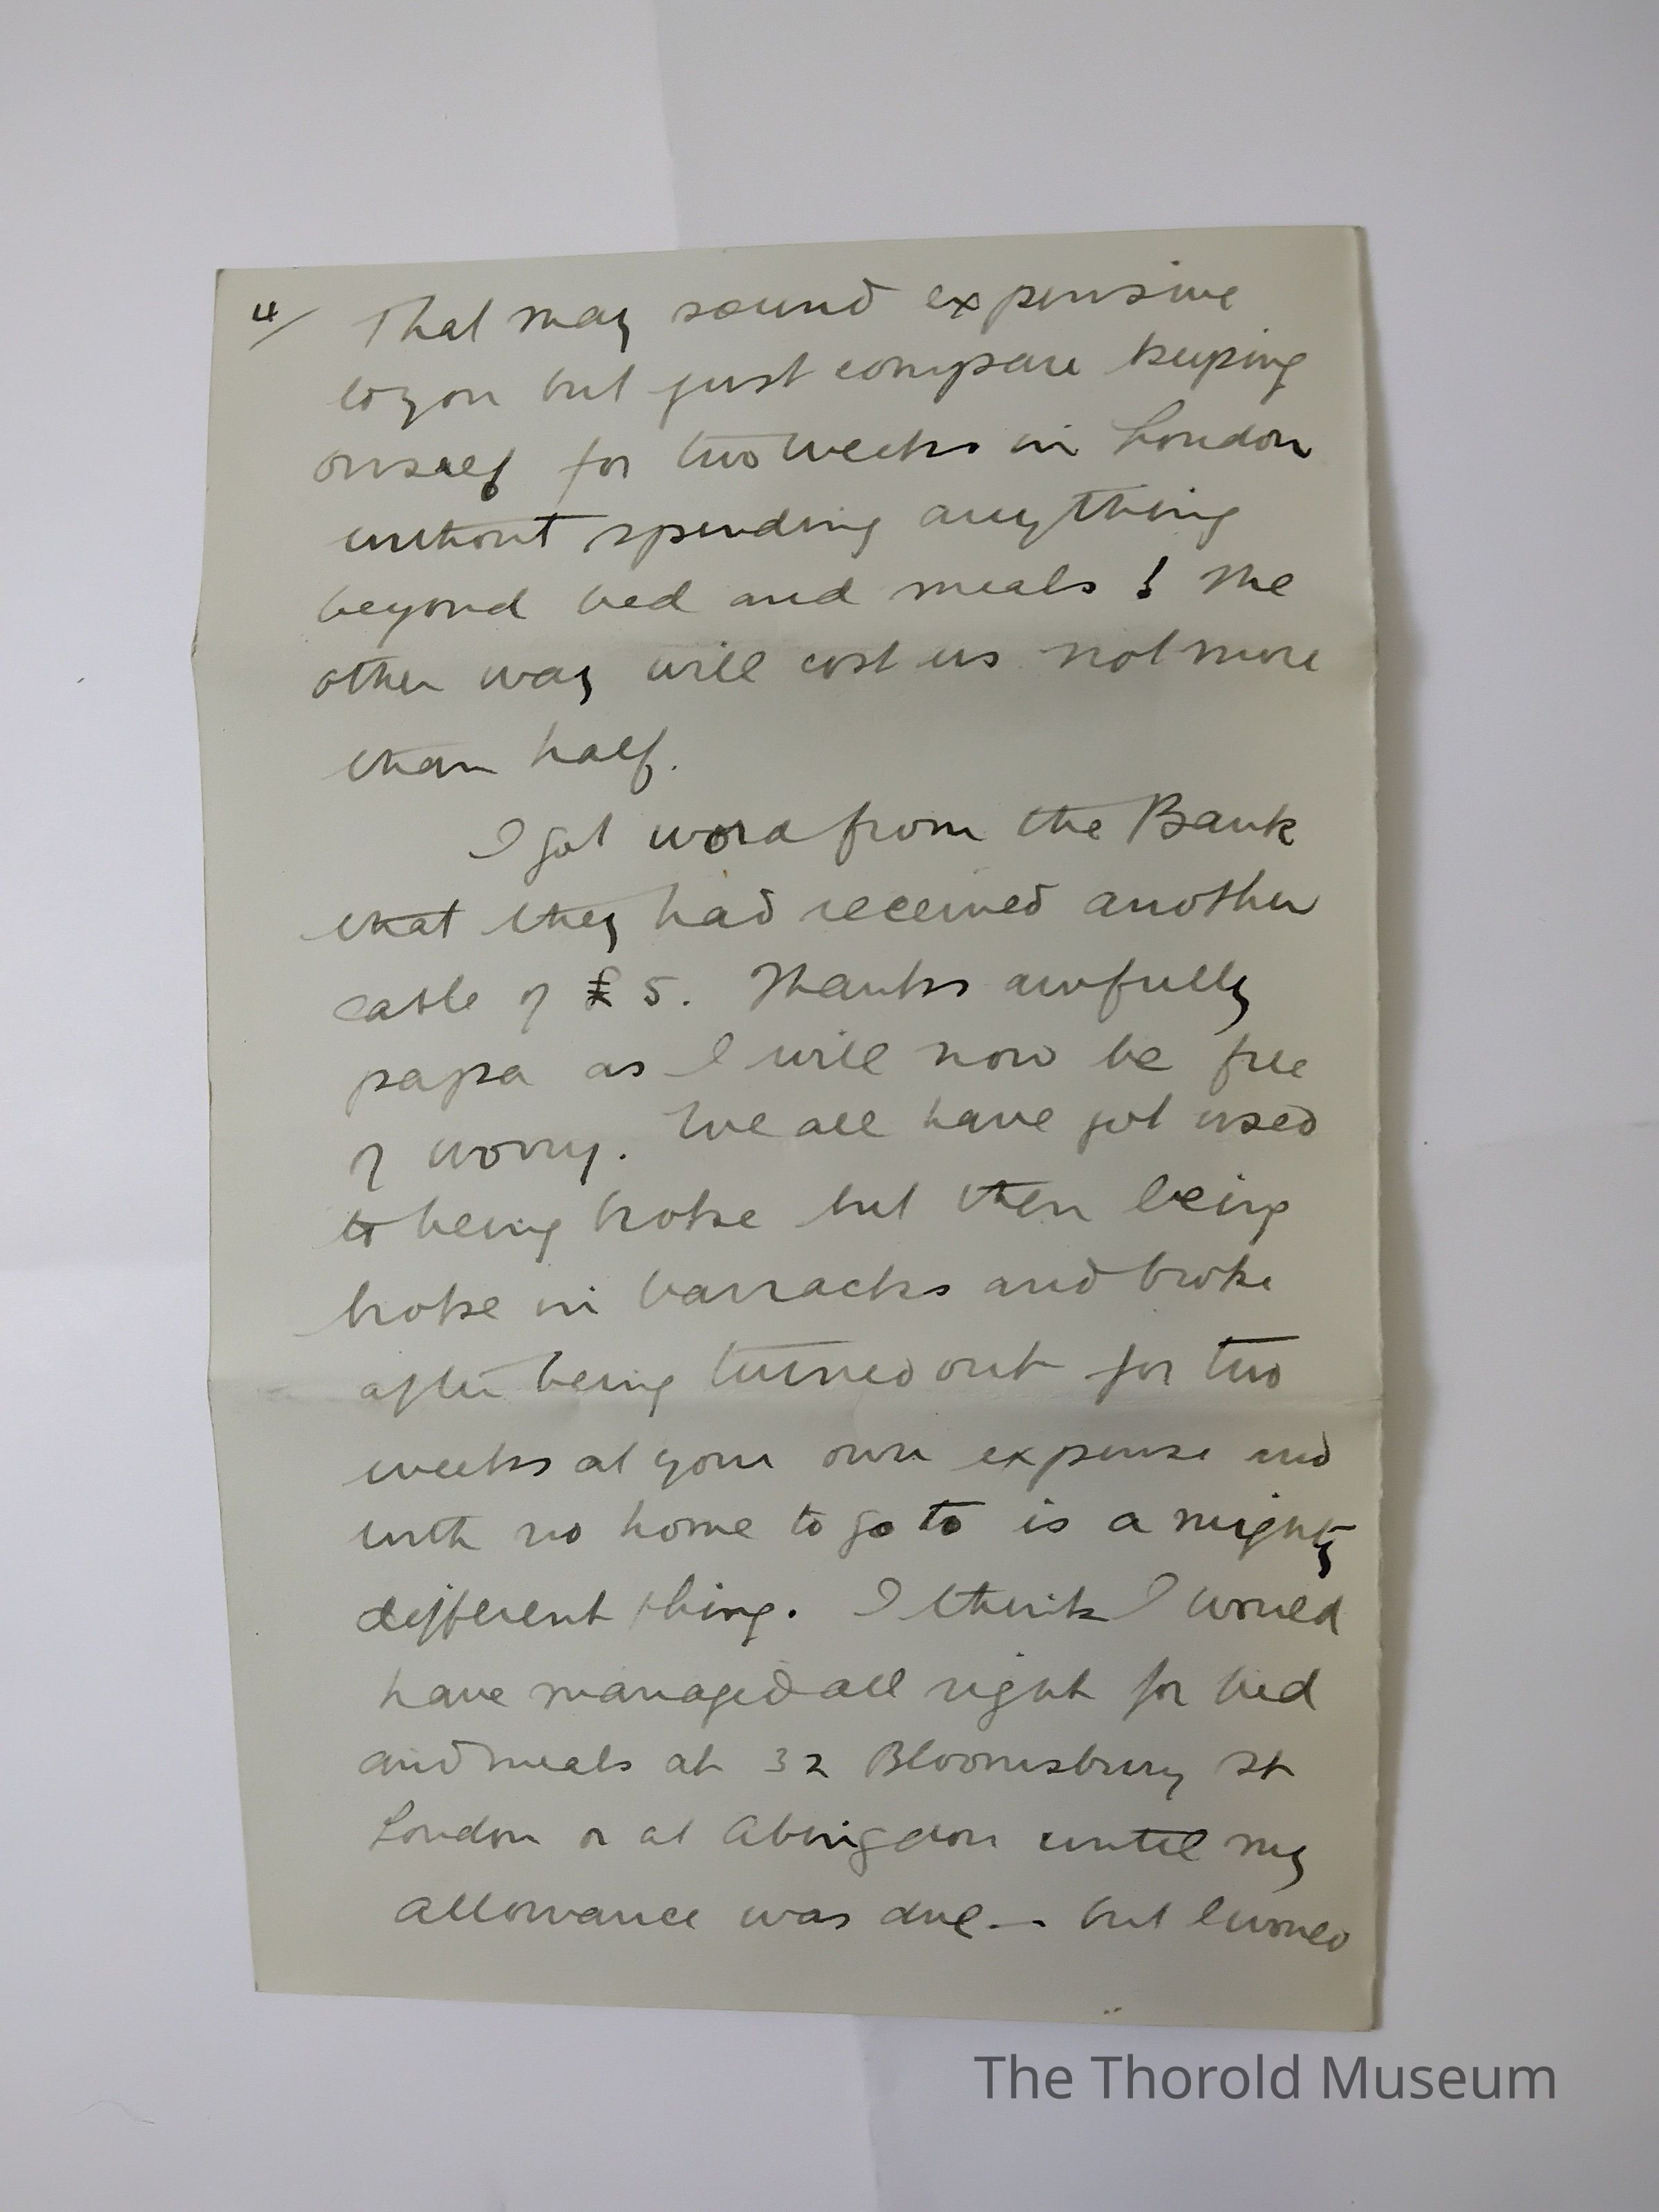 4/ That may sound expensive
to you but just compare keeping
onself for two weeks in London
without spending anything
beyond bed and meals! The
other way will cost us not more
than half.
I got word from the Bank
that they had received another
cable of £5. Thanks awfully
papa as I will now be free
of worry. We all have got used
to being broke but then being
broke in barracks and broke
after being turned out for two
weeks at your own expense and
with no home to go to is a mighty
different thing. I think I would
have managed all right for bed
and meals at 32 Bloomsbury St
London or at Abingdon until my
allowance was due — but I would
The Thorold Museum